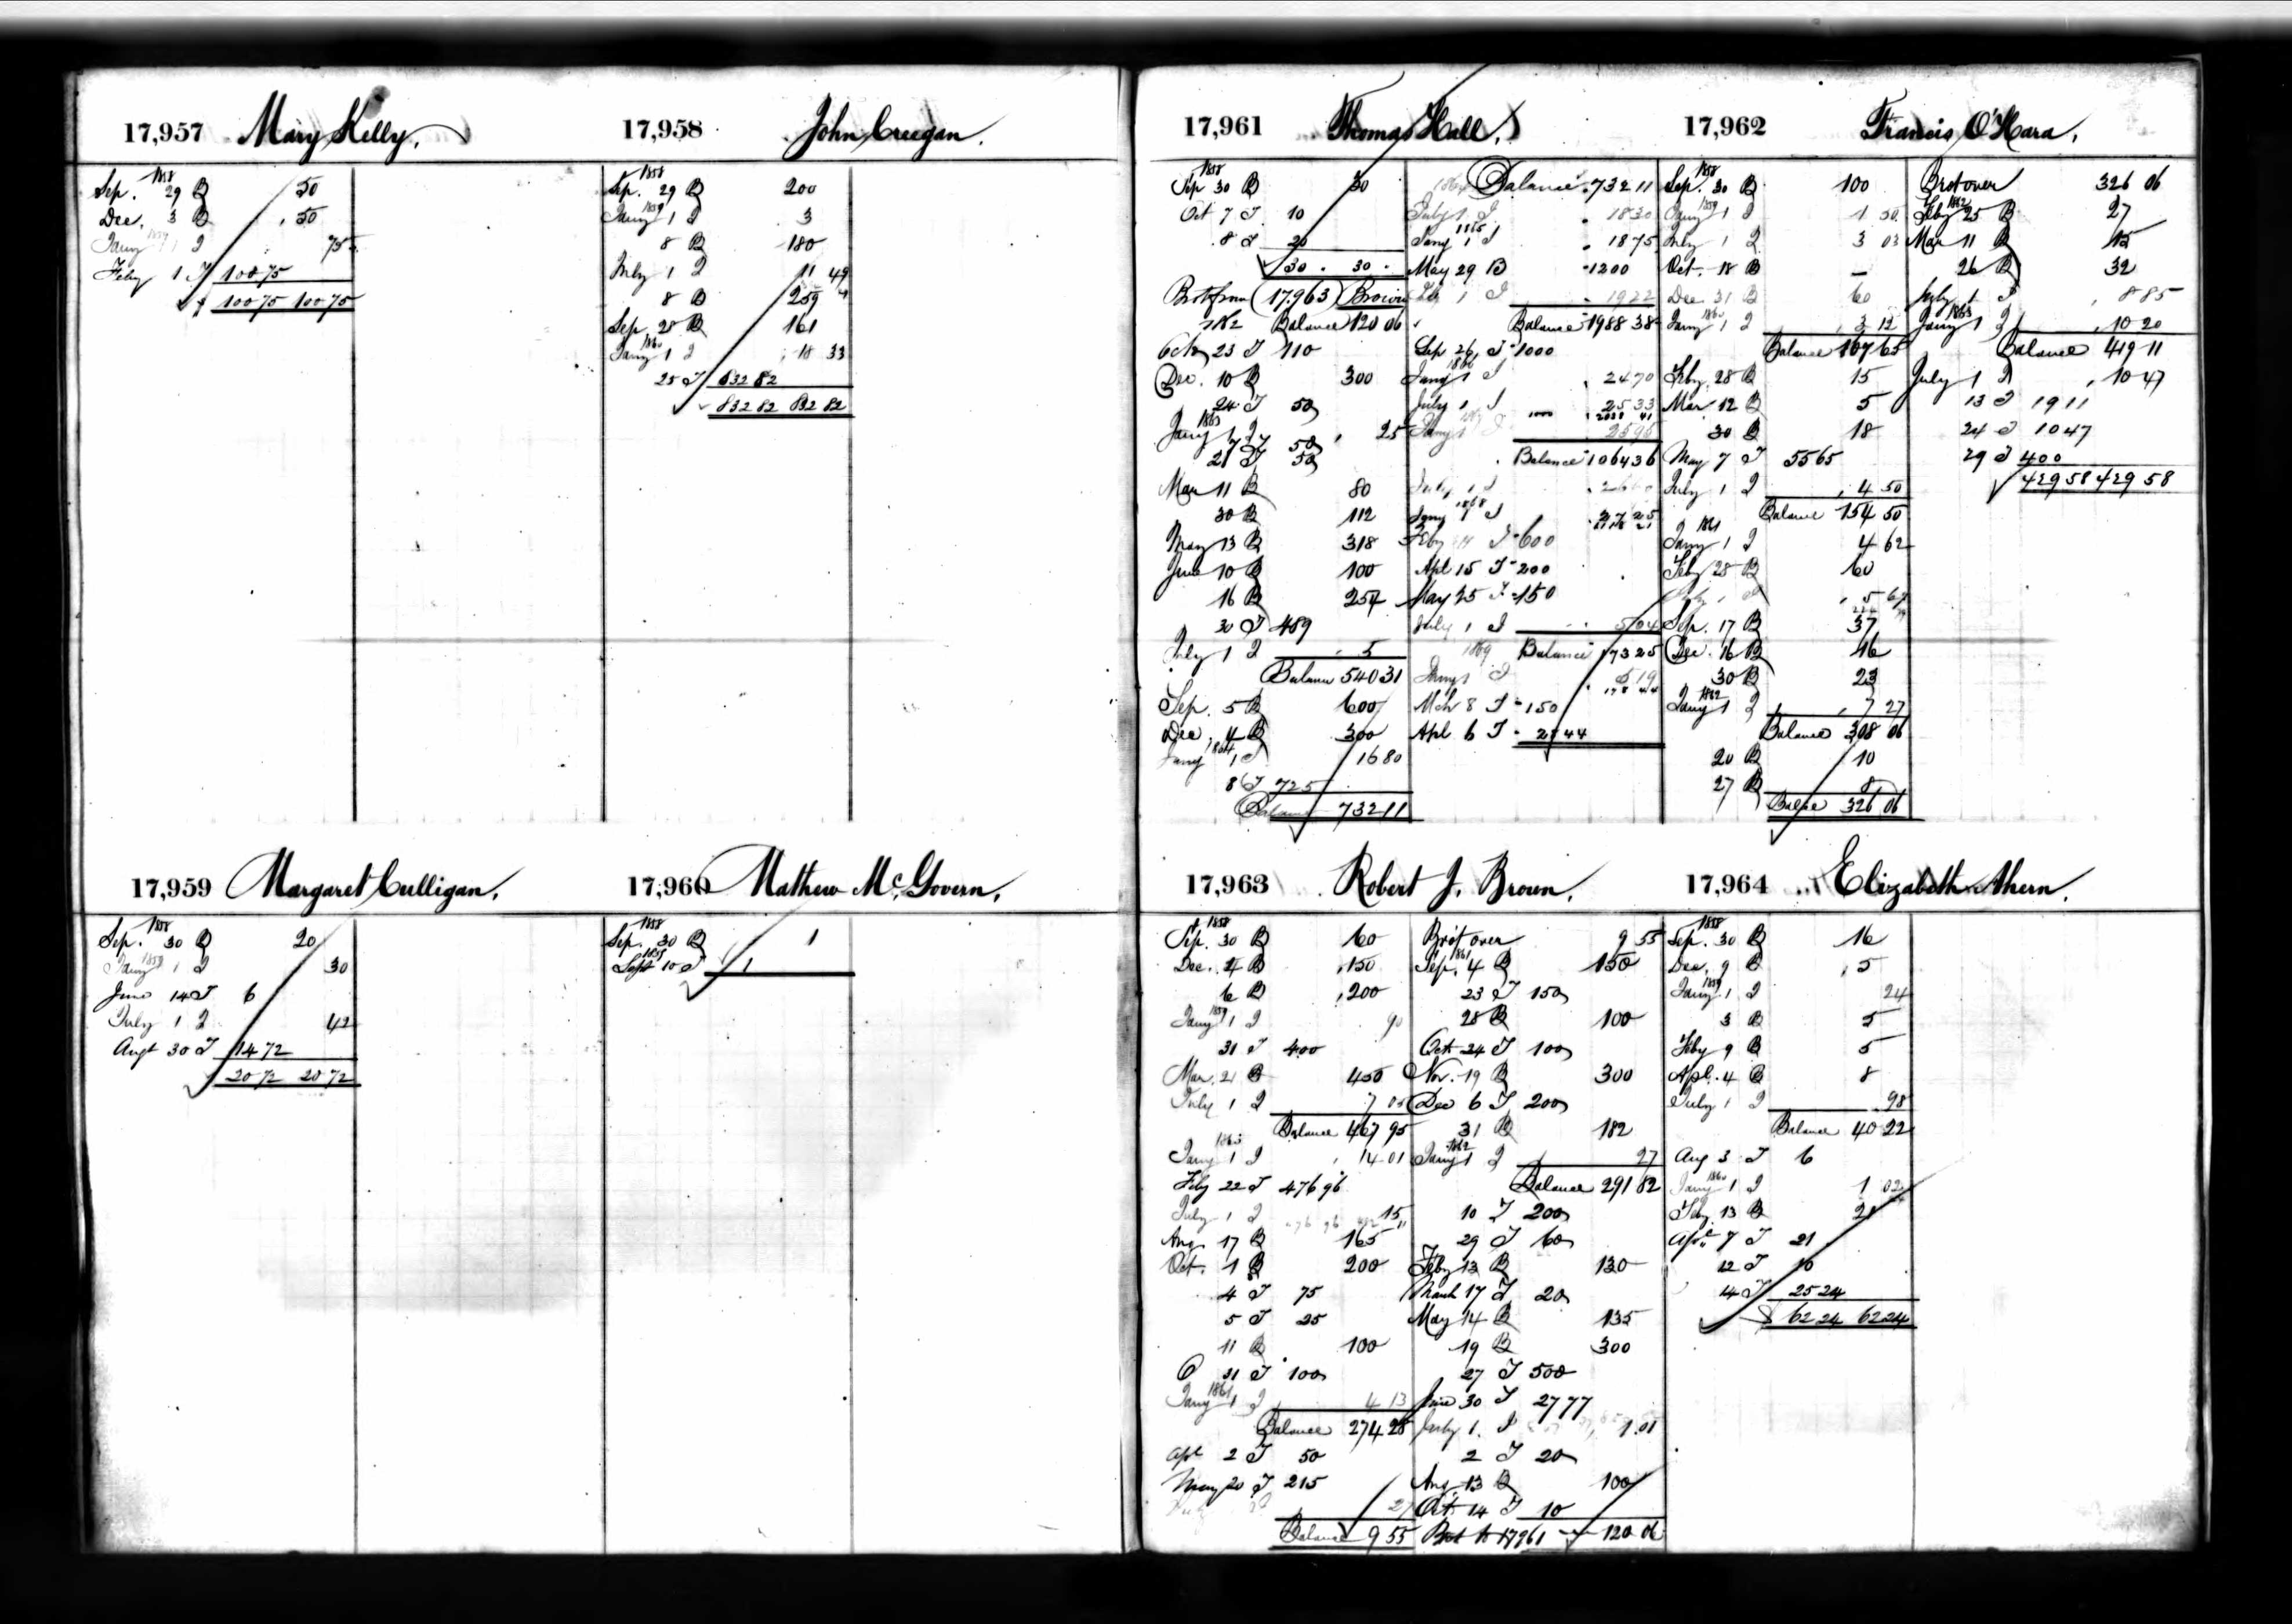 17,957 Mary Kelly.
1858
Sep. 29 B 50
Dec. 3 B 50
Jany 1 I 75
Feby 1 T 100 75
100 75 100 75
17,958 John Creegan.
1858
Sep. 29 B 200
1859
Jany 1 I 3
8 B 180
July 1 I 11 49
8 B 259
Sep. 28 B 161
1860
Jany 1 I 18 33
25 T 832 82
832 82 832 82
17,959 Margaret Culligan.
1858
Sep. 30 B 20
1859
Jany 1 I 30
June 14 T 6
July 1 I 42
Augt 30 T 14 72
20 72 20 72
17,960 Mathew McGovern.
1858
Sep. 30 B 1
1859
Sept 10 T 1
17,961 Thomas Hall.
1858
Sep 30 B 30
Oct 7 T 10
8 T 20
30 . 30 .
Brot from (17.963) Brown
1862 Balance 120 06
Octr 23 T 110
Dec. 10 B 300
24 T 50
1863
Jany 1 I 25
7 T 50
21 T 50
Mar 11 B 80
30 B 112
May 13 B 318
June 10 B 100
16 B 254
30 T 489
July 1 I 5
Balance 540 31
Sep. 5 B 600
Dec. 4 B 300
1864
Jany 1 I 16 80
8 T 725
Balance 732 11
1864 Balance 732 11
July 1 I 18 30
1865
Jany 1 I 18 75
May 29 B 1200
July 1 I 19 22
Balance 1988 38
Sep 26 T 1000
1866
Jany 1 I 24 70
July 1 I 25 33
Jany 1 I 25 96
Balance 1064 36
July 1 I
1868
Jany 1 I 27 25
Feby 11 T 600
Apl 15 T 200
May 25 T 150
July 1 I 5 04
1869 Balance 173 25
Jany 1 I 5 19
178 44
Mch 8 T 150
Apl 6 T 28 44
17,962 Francis O'Hara.
1858
Sep. 30 B 100
1859
Jany 1 I 1 50
July 1 I 3 03
Oct. 18 B —
Dec. 31 B 60
1860
Jany 1 I 3 12
Balance 167 65
Feby. 28 B 15
Mar. 12 B 5
30 B 18
May 7 T 55 65
July 1 I 4 50
Balance 154 50
1861
Jany 1 I 4 62
Feby 28 B 60
July 1 I 5 67
Sep. 17 B 37
Dec. 16 B 16
30 B 23
1862
Jany 1 I 7 27
Balance 308 06
20 B 10
27 B 8
Balce 326 06
Brot over 326 06
1862
Feby 25 B 27
Mar 11 B 15
26 B 32
July 1 I 8 85
1863
Jany 1 I 10 20
Balance 419 11
July 1 I 10 47
13 T 19 11
24 T 10 47
29 T 400
429 58 429 58
17,963 Robert J. Brown.
1858
Sep. 30 B 60
Dec. 4 B 150
6 B 200
1859
Jany 1 I 90
31 T 400
Mar. 21 B 450
July 1 I 7 05
Balance 467 95
1860
Jany 1 I 14 01
Feby 22 T 476 96
July 1 I 15
Aug. 17 B 165
Oct. 1 B 200
4 T 75
5 T 25
11 B 100
31 T 100
1861
Jany 1 I 4 13
Balance 274 28
Apl 2 T 50
May 20 T 215
27
Balance 9 55
Brot over 9 55
1861
Sep. 4 B 150
23 T 150
28 B 100
Oct. 24 T 100
Nov. 19 B 300
Dec 6 T 200
31 B 182
1862
Jany 1 I 27
Balance 291 82
10 T 200
29 T 60
Feby 13 B 130
March 17 T 20
May 14 B 135
19 B 300
27 T 500
June 30 T 27 77
July 1. I 1.01
2 T 20
Aug. 13 B 100
Oct. 14 T 10
Brot to 17961 120 06
17,964 Elizabeth Ahern.
1858
Sep. 30 B 16
Dec. 9 B 5
1859
Jany 1 I 24
3 B 5
Feby 9 B 5
Apl. 4 B 8
July 1 I 98
Balance 40 22
Aug 3 T 6
1860
Jany 1 I 1 02
Feby. 13 B 21
Apl. 7 T 21
12 T 10
14 T 25 24
62 24 62 24